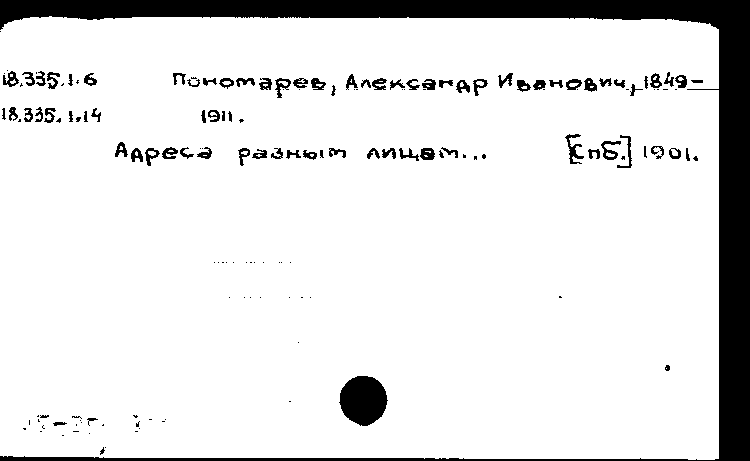 18.335.1.6 Пономарев, Александр Иванович, 1849-
18.335.1.14 1911.
Адреса разным лицам... [Спб.] 1901.